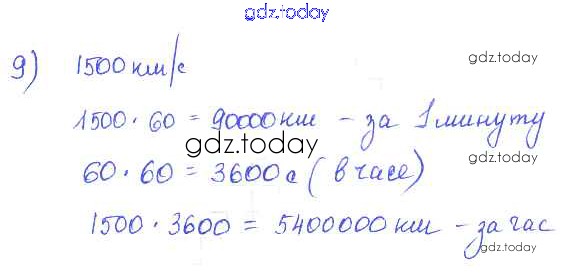 gdz.today
9) 1500 км/с
gdz.today
1500 · 60 = 90000 км - за 1 минуту
gdz.today
60 · 60 = 3600 с (в часе)
gdz.today
1500 · 3600 = 5400000 км - за час
gdz.today